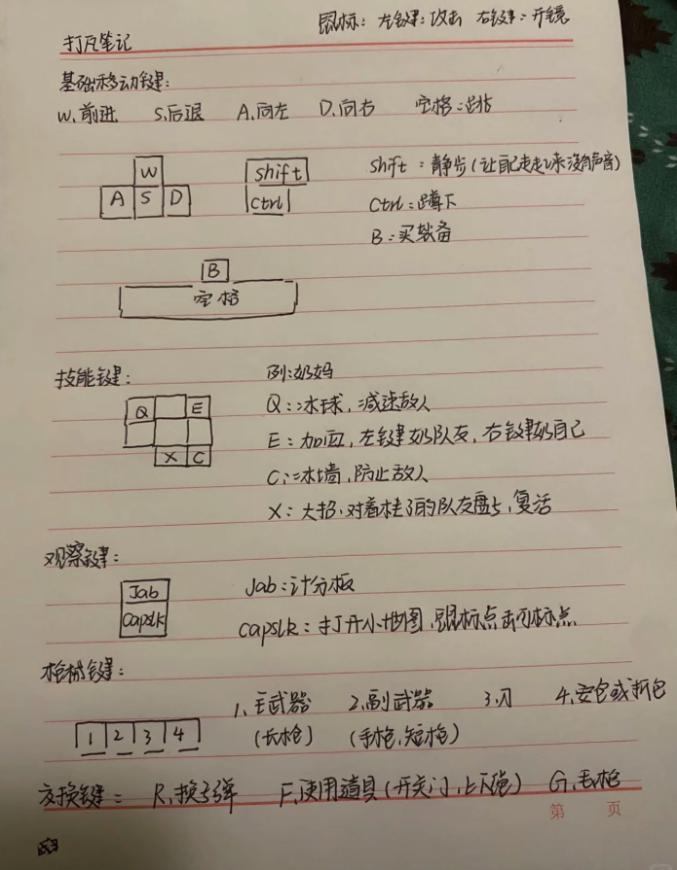 鼠标：左键：攻击 右键：开镜
打瓦笔记
基础移动键：
W、前进 S、后退 A、向左 D、向右 空格：跳
W
A S D
Shift
Ctrl
Shift：静步（让自己走起来没有声音）
Ctrl：蹲下
B：买装备
B
空格
技能键：
例：奶妈
Q E
X C
Q：冰球，减速敌人
E：加血，左键奶队友，右键奶自己
C：冰墙，防止敌人
X：大招，对着挂了的队友盘点，复活
观察键：
Jab
CapsLk
Jab：计分板
CapsLk：打开小地图，鼠标点击可标点
枪械键：
1 2 3 4
1、主武器 2、副武器 3、刀 4、安包或拆包
（长枪） （手枪，短枪）
交换键： R、换子弹 F、使用道具（开关门，上下绳） G、丢枪
第 页